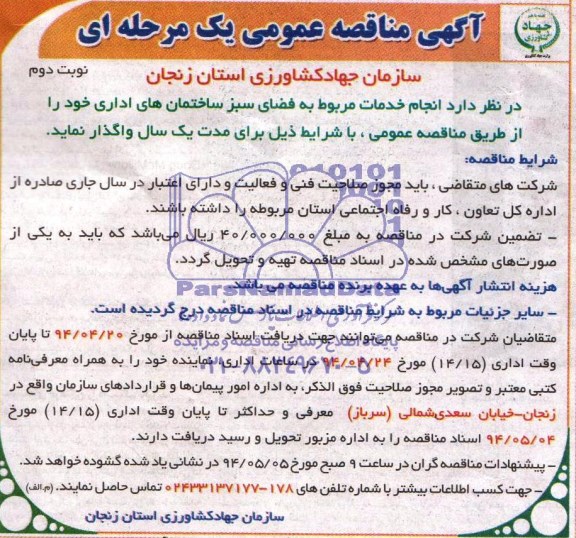 جهاد کشاورزی
آگهی مناقصه عمومی یک مرحله ای
سازمان جهادکشاورزی استان زنجان
نوبت دوم
در نظر دارد انجام خدمات مربوط به فضای سبز ساختمان های اداری خود را
از طریق مناقصه عمومی ، با شرایط ذیل برای مدت یک سال واگذار نماید.
شرایط مناقصه:
شرکت های متقاضی ، باید مجوز صلاحیت فنی و فعالیت و دارای اعتبار در سال جاری صادره از
اداره کل تعاون ، کار و رفاه اجتماعی استان مربوطه را داشته باشند.
- تضمین شرکت در مناقصه به مبلغ ۴۰/۰۰۰/۰۰۰ ریال می‌باشد که باید به یکی از
صورت‌های مشخص شده در اسناد مناقصه تهیه و تحویل گردد.
هزینه انتشار آگهی‌ها به عهده برنده مناقصه می باشد
- سایر جزییات مربوط به شرایط مناقصه در اسناد مناقصه درج گردیده است.
متقاضیان شرکت در مناقصه می‌توانند جهت دریافت اسناد مناقصه از مورخ ۹۴/۰۴/۲۰ تا پایان
وقت اداری (۱۴/۱۵) مورخ ۹۴/۰۴/۲۴ در ساعات اداری نماینده خود را به همراه معرفی‌نامه
کتبی معتبر و تصویر مجوز صلاحیت فوق الذکر، به اداره امور پیمان‌ها و قراردادهای سازمان واقع در
زنجان-خیابان سعدی‌شمالی (سرباز) معرفی و حداکثر تا پایان وقت اداری (۱۴/۱۵) مورخ
۹۴/۰۵/۰۴ اسناد مناقصه را به اداره مزبور تحویل و رسید دریافت دارند.
- پیشنهادات مناقصه گران در ساعت ۹ صبح مورخ ۹۴/۰۵/۰۵ در نشانی یاد شده گشوده خواهد شد.
- جهت کسب اطلاعات بیشتر با شماره تلفن های ۱۷۸-۰۲۴۳۳۱۳۷۱۷۷ تماس حاصل نمایند. (م.الف)
سازمان جهاد کشاورزی استان زنجان
ParsNamadData
۰۲۱-۸۸۳۴۹۶۷۰-۵